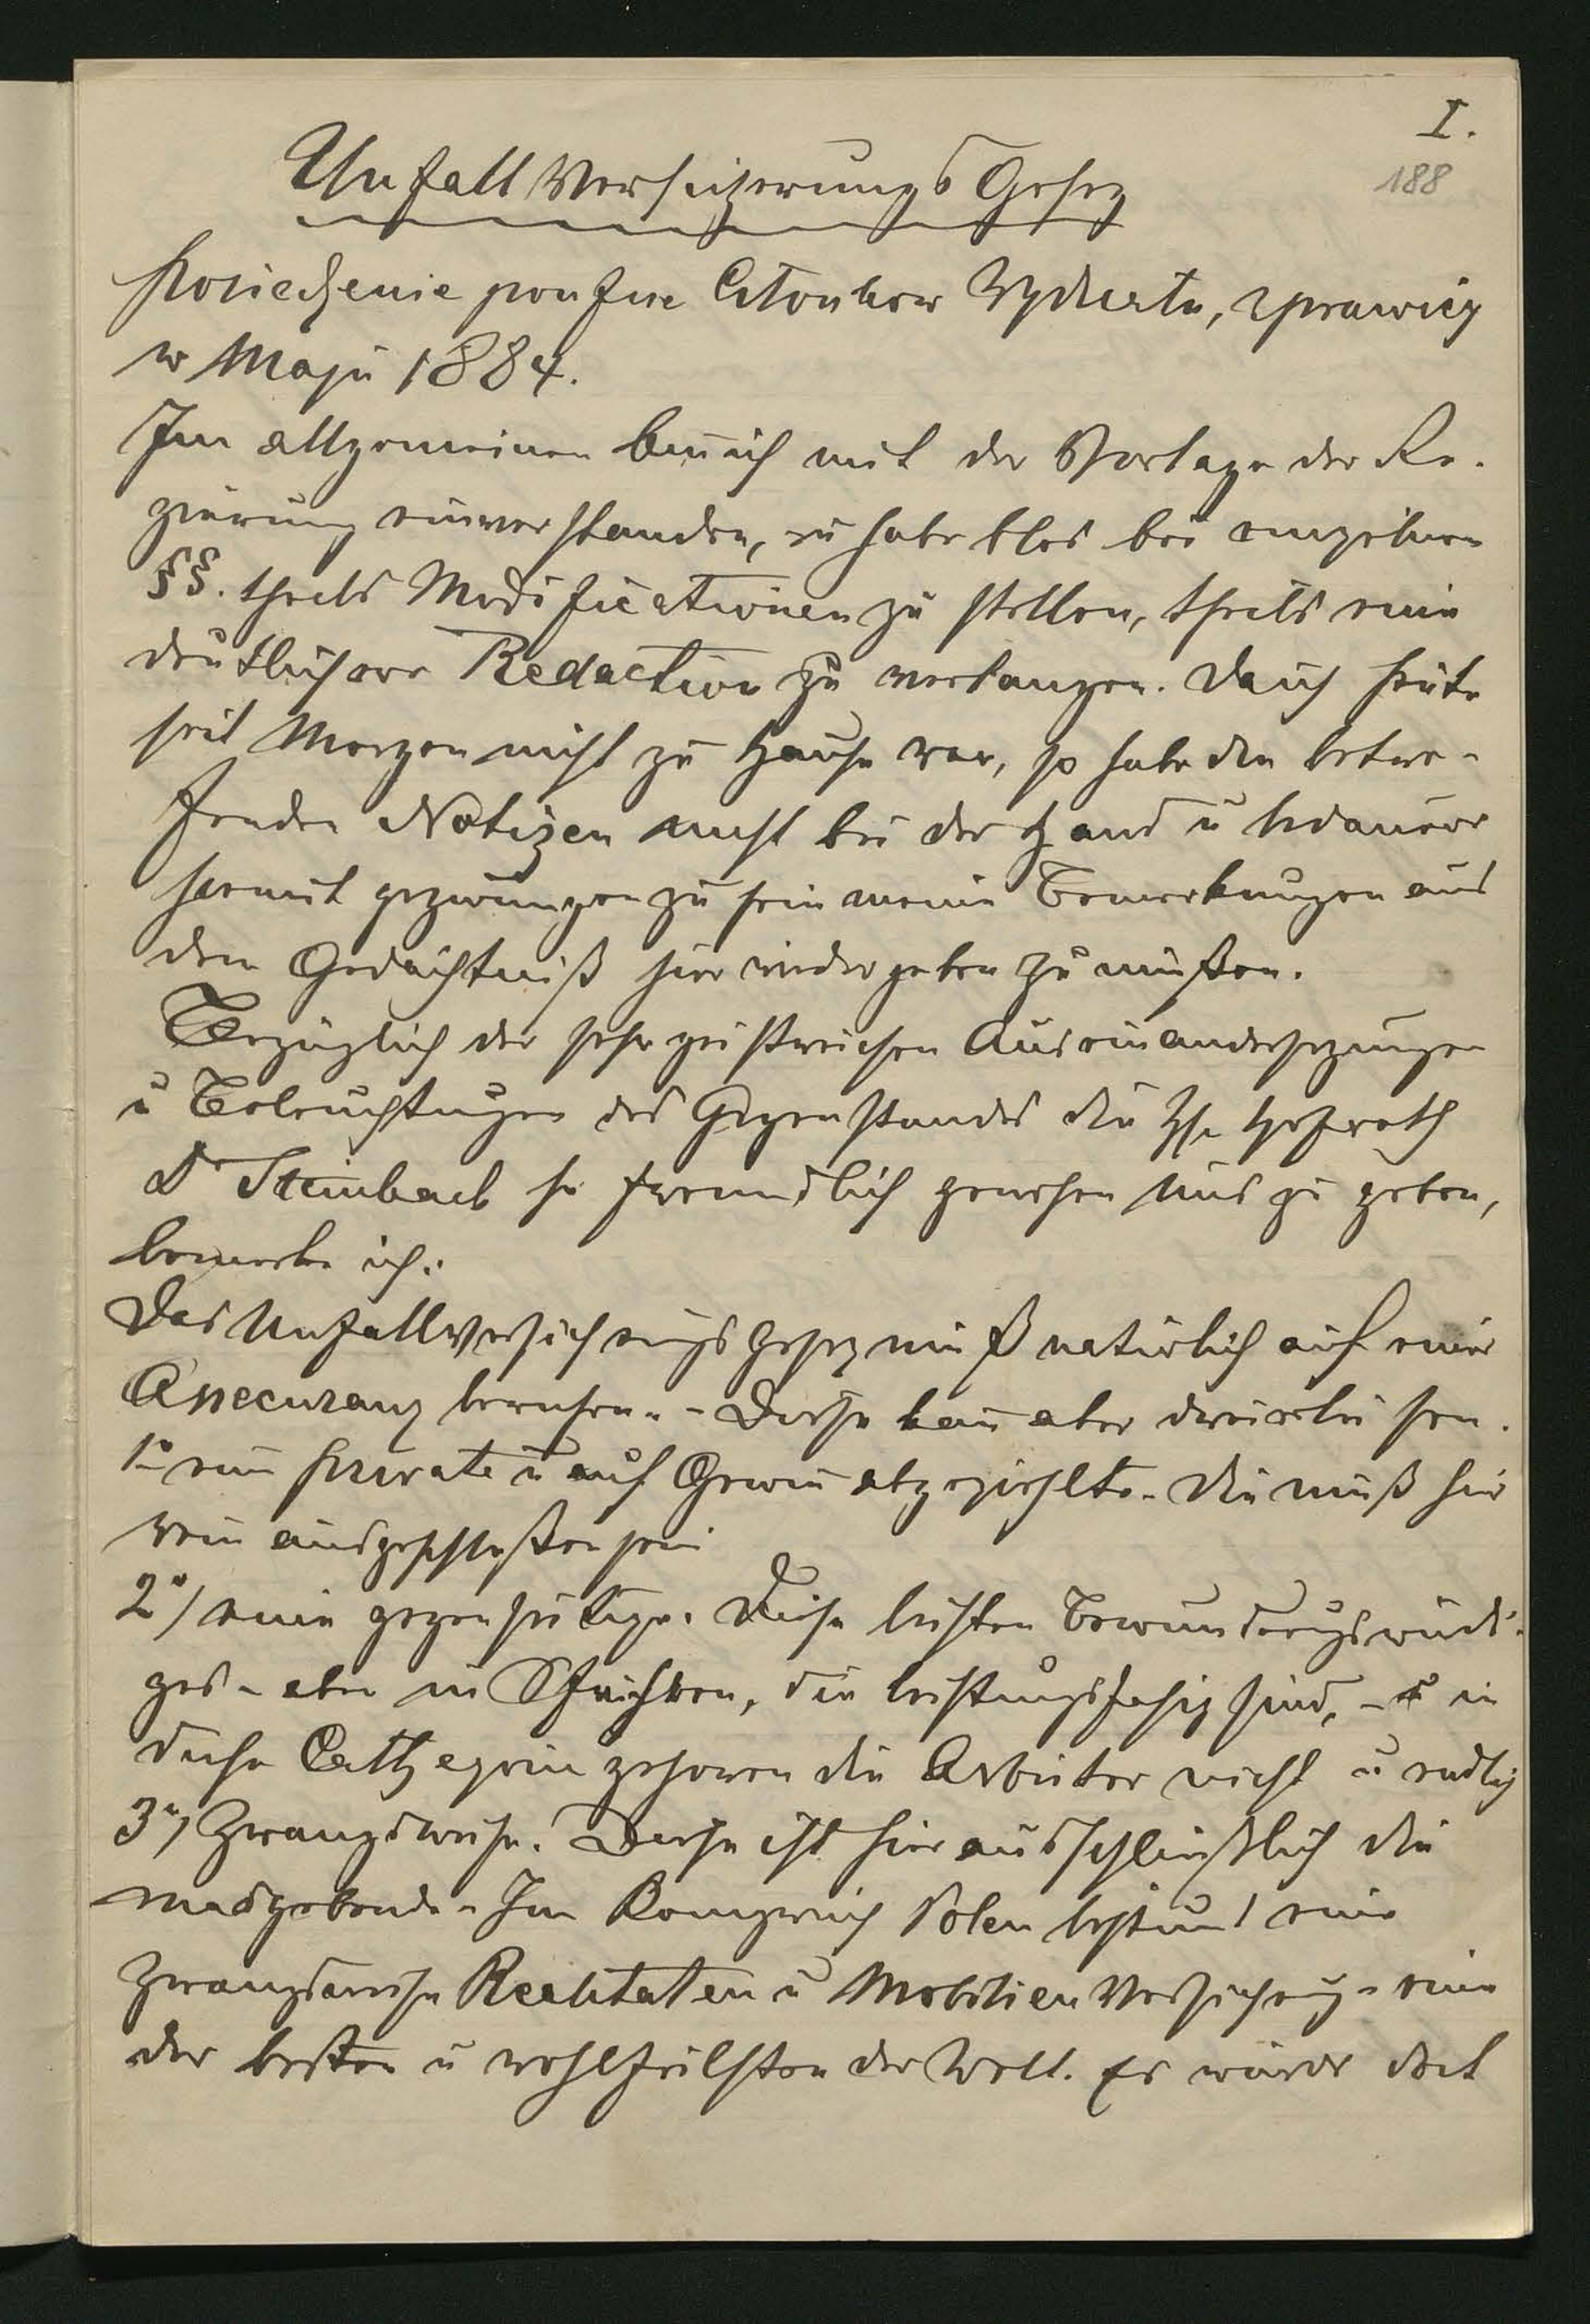 I.
188
Unfall Versicherungs Gesez
Posiedzenie poufne Członków Wydziału, sprawiey
w Maju 1884.
Im allgemeinen bin ich mit der Vorlage der Re-
gierung einverstanden, u habe blos bei einzelnen
§§. theils Modificationen zu stellen, theils eine
deutlichere Redaction zu verlangen. Da ich heute
seit Morgen nicht zu Hause war, so habe die betre-
fenden Notizen nicht bei der Hand u bedauere
hiermit gezwungen zu sein meine Bemerkungen aus
dem Gedächtniß hier wiedergeben zu müßen.
Bezüglich der sehr geistreichen Auseinandersezungen
u Beleuchtungen des Gegenstandes die H Hofrath
Dr Steinbach so freundlich gewesen uns zu geben,
bemerke ich:
Das Unfallversicherungsgesez muß natürlich auf einer
Assecuranz beruhen. - Diese kann aber dreierlei sein.
1o eine private u auf Gewinn abgezielte. Die muß hier
rein ausgeschloßen sein
2o/ eine gegenseitige. Diese leisten Bewunderungswürdi-
ges - aber in Schichten, die leistungsfähig sind, - u in
diese Cathegorie gehören die Arbeiter nicht u endlich
3o/ Zwangsweise. Diese ist hier ausschließlich die
masgebende. Im Königreich Polen besteht eine
zwangsweise Realitaten u Mobilien Versicherung - eine
der besten u wohlfeilsten der Welt. Es würde dort